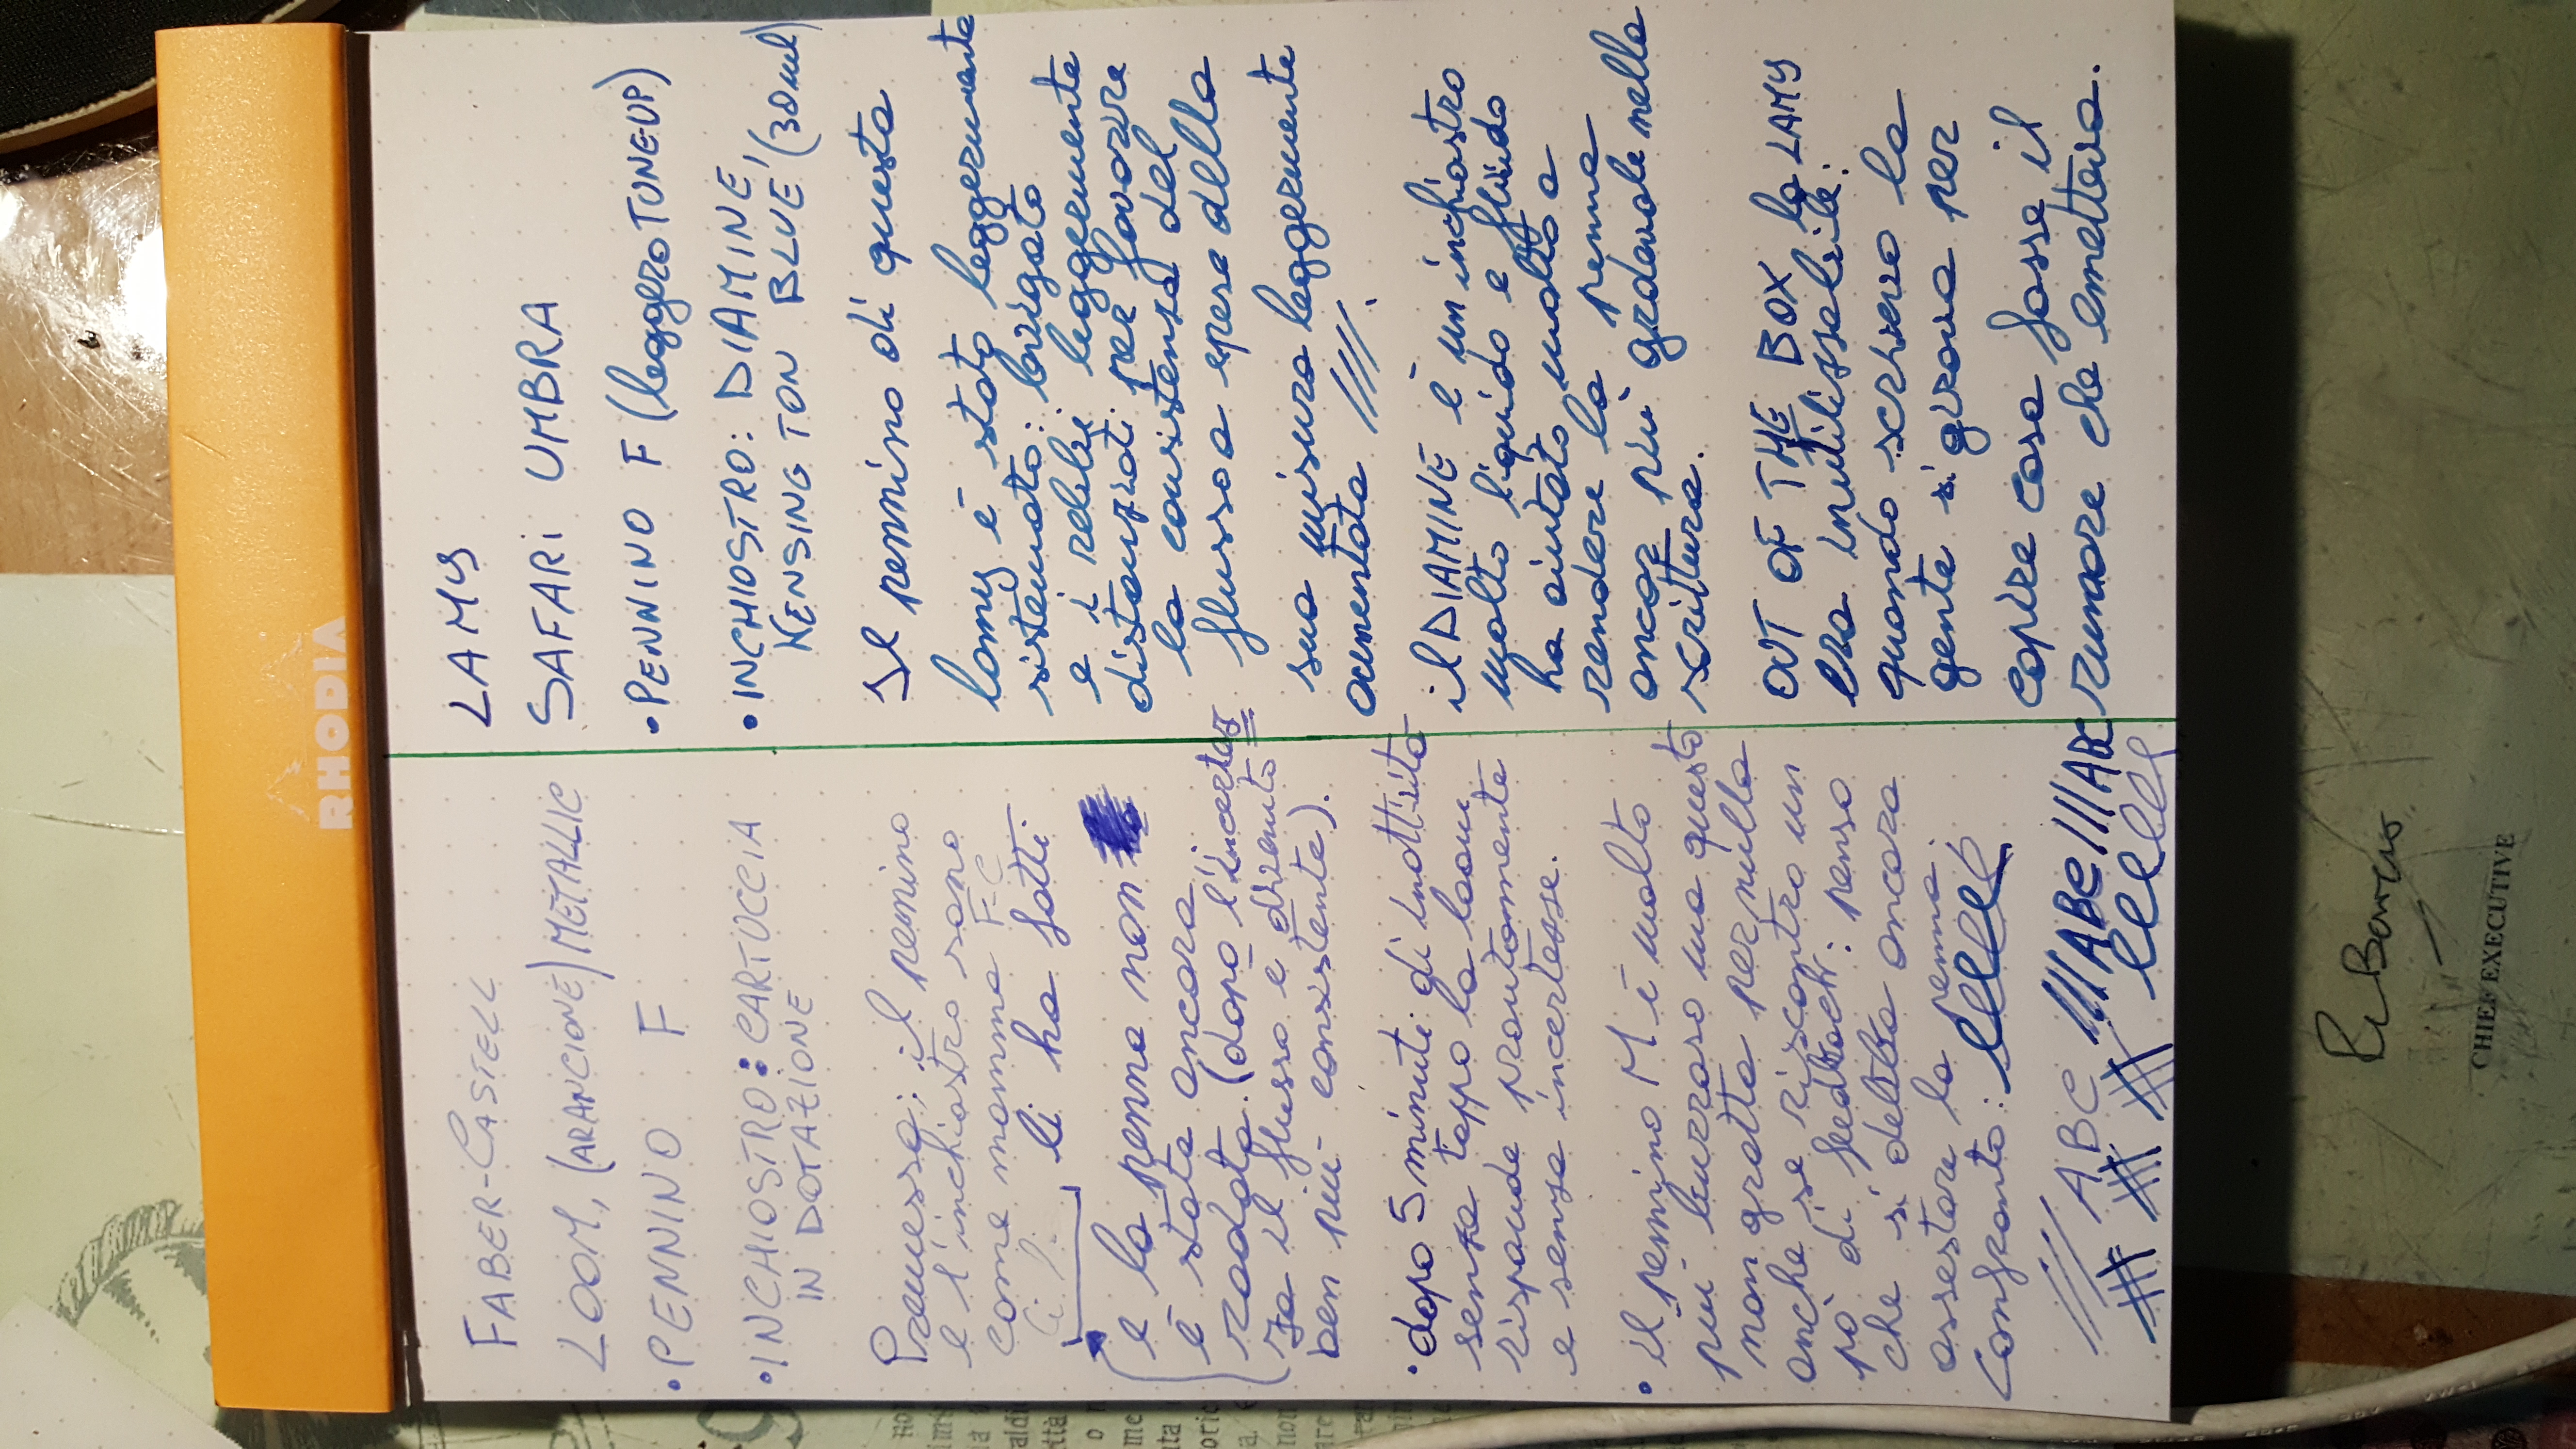 RHODIA
FABER-CASTELL
LOOM, (ARANCIONE) METALLIC
• PENNINO F
• INCHIOSTRO: CARTUCCIA
IN DOTAZIONE
Premessa; il pennino
e l'inchiostro sono
come mamma FC
li ha fatti.
e la penna non
è stata ancora
rodata. (dopo l'incertezza
il flusso è divenuto
ben più consistente).
• dopo 5 minuti di inattività
senza tappo la loom
risponde prontamente
e senza incertezze.
• il pennino M è molto
più burroso ma questo
non gratta per nulla
anche se riscontro un
pò di feedback: penso
che si debba ancora
assestare la penna.
Confronto: lllll
//// ABC //// ABC /// ABC
lllll lllll
LAMY
SAFARI UMBRA
• PENNINO F (leggero TUNEUP)
• INCHIOSTRO: DIAMINE,
KENSINGTON BLUE, (30ml)
Il pennino di questa
lamy è stato leggermente
sistemato: levigato
e i rebbi leggermente
distanziati per favorire
la consistenza del
flusso a spese della
sua misura leggermente
aumentata ////.
il DIAMINE è un inchiostro
molto liquido e fluido
ha aiutato molto a
rendere la penna
ancor più gradevole nella
scrittura.
OUT OF THE BOX la LAMY
era inutilizzabile:
quando scrivevo la
gente si girava per
capire cosa fosse il
rumore che emetteva.
CHIEF EXECUTIVE